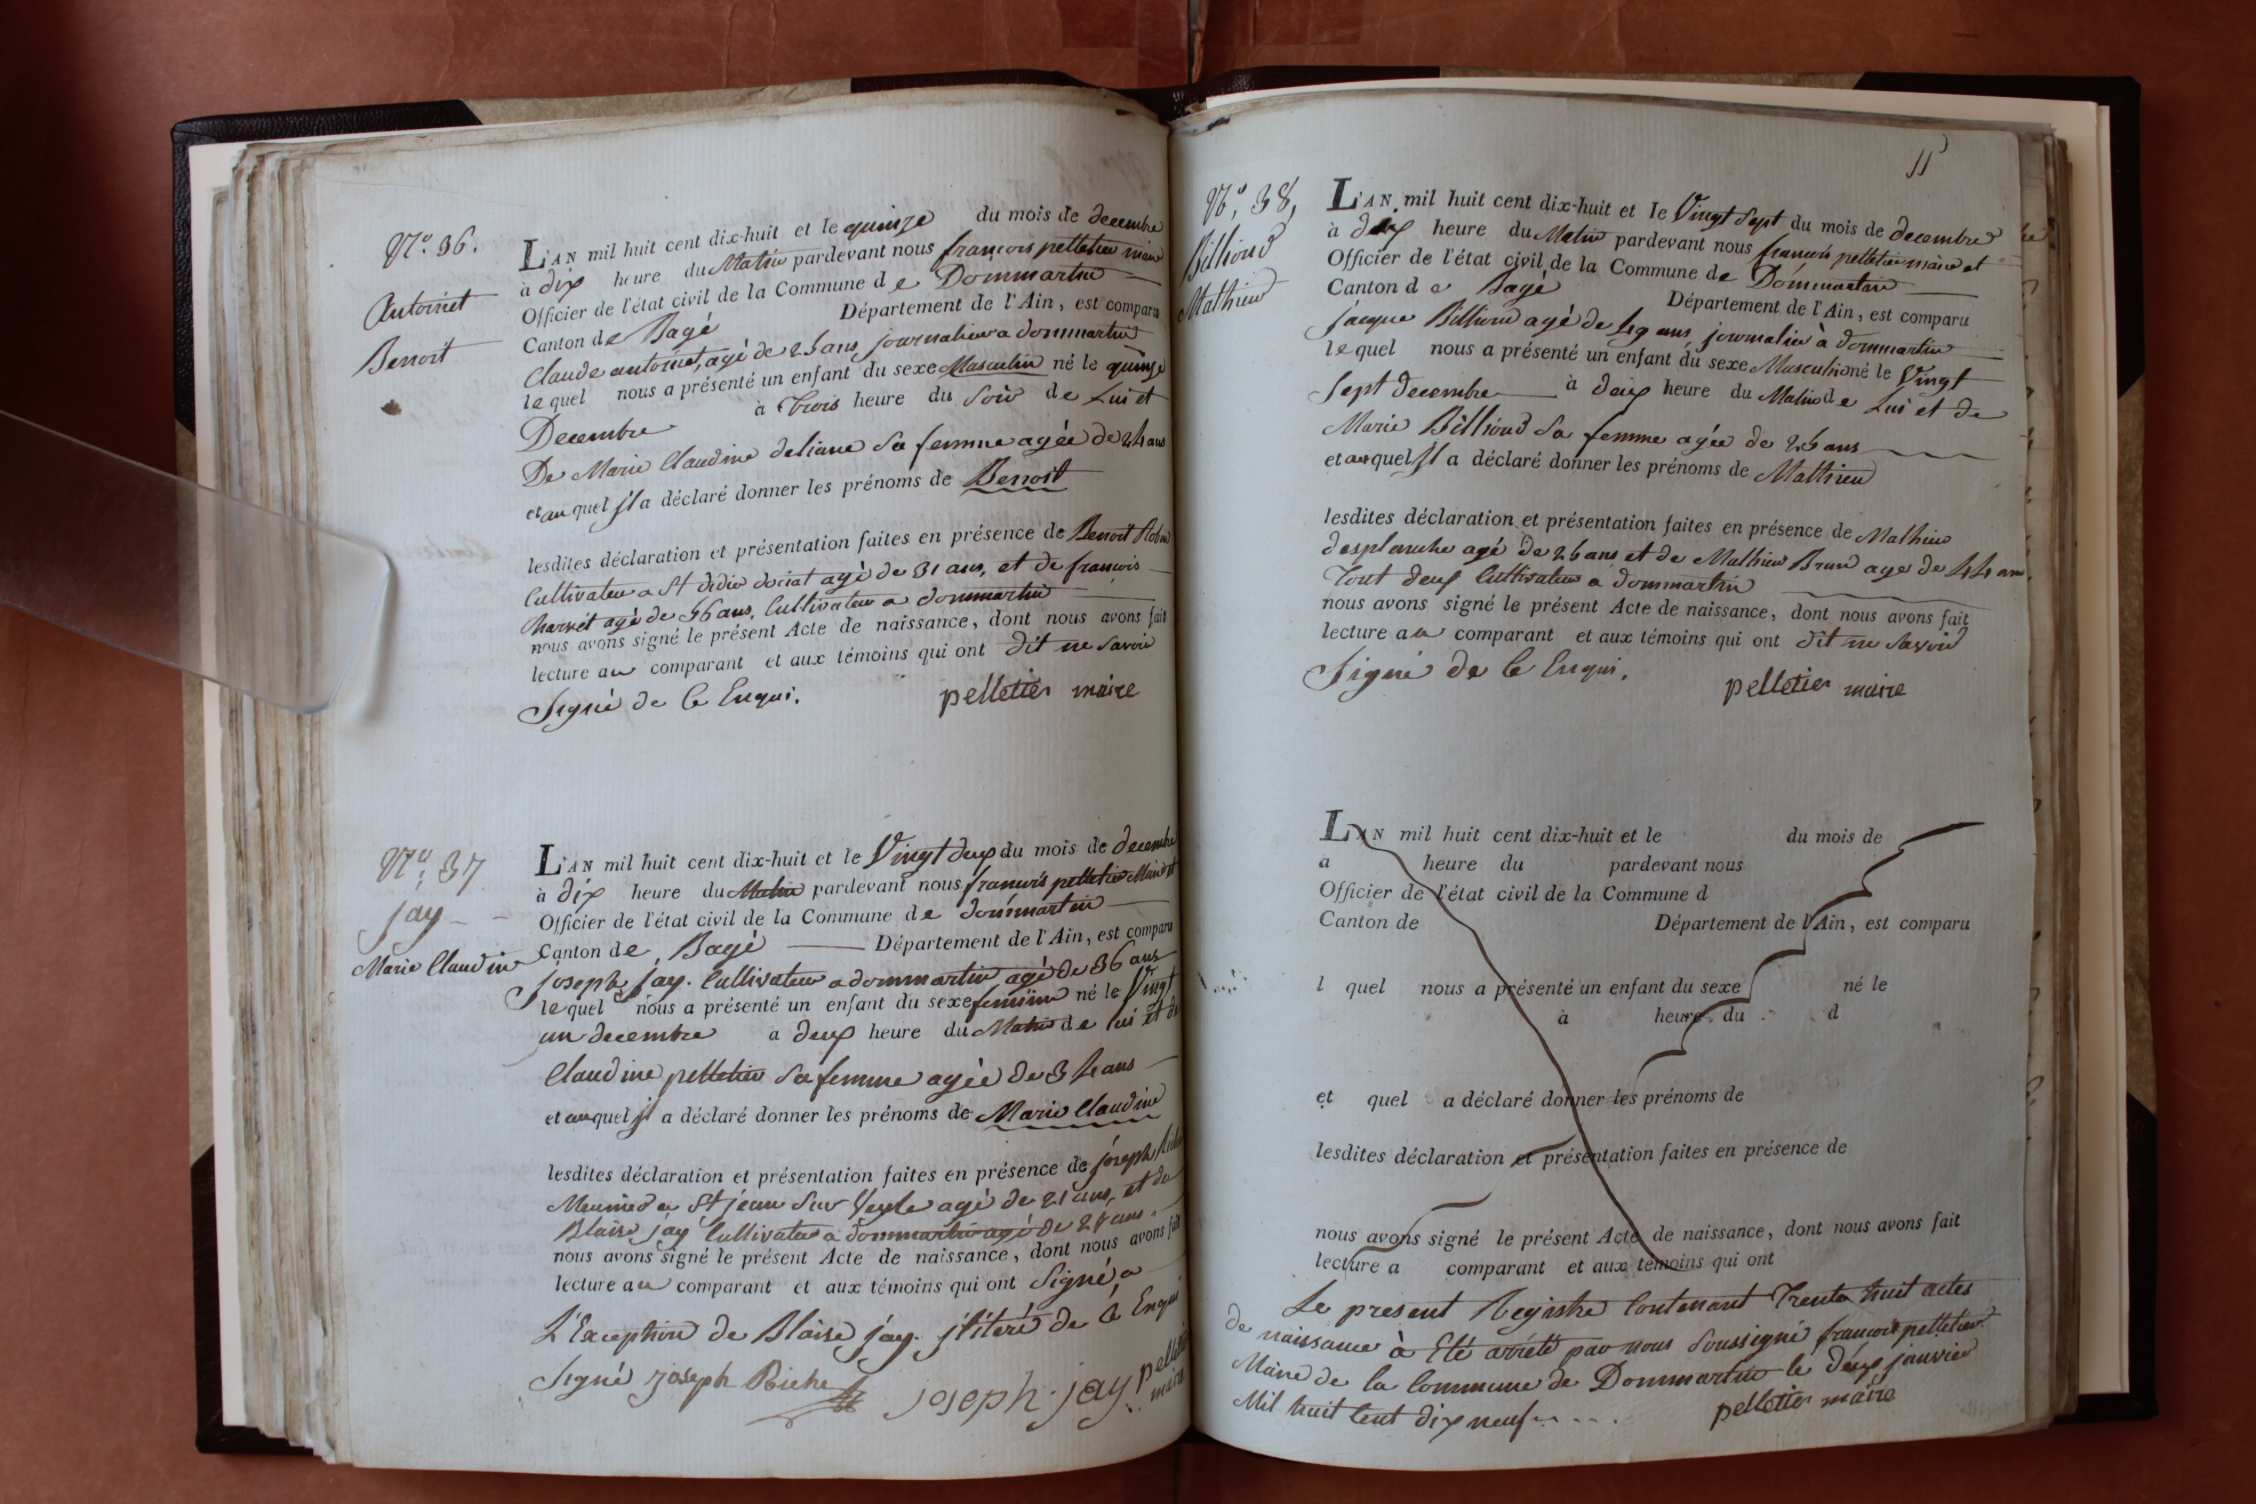 N.º 36.
Antoinet
Benoit
L'AN mil huit cent dix-huit et le quinze du mois de decembre
à dix heure du Matin pardevant nous françois pelletier maire
Officier de l'état civil de la Commune de Dommartin
Canton de Bagé Département de l'Ain, est comparu
Claude antoinet, agé de 25 ans journalier a dommartin
lequel nous a présenté un enfant du sexe Masculin né le quinze
Decembre à trois heure du soir de Lui et
De Marie Claudine deliane sa femme agée de 24 ans
et au quel jl a déclaré donner les prénoms de Benoit
lesdites déclaration et présentation faites en présence de Benoit Robin
Cultivateur a St didier dociat agé de 31 ans, et de francois
harnet agé de 56 ans, Cultivateur a dommartin
nous avons signé le présent Acte de naissance, dont nous avons fait
lecture au comparant et aux témoins qui ont dit ne savoir
Signé de ce Enqui.
pelletier maire
N.º 37
jay
Marie Claudine
L'AN mil huit cent dix-huit et le Vingt deux du mois de decembre
à dix heure du Matin pardevant nous francois pelletier Maire et
Officier de l'état civil de la Commune de dommartin
Canton de Bagé Département de l'Ain, est comparu
joseph jay. Cultivateur a dommartin agé de 36 ans
lequel nous a présenté un enfant du sexe feminin né le Vingt
un decembre a deux heure du Matin de lui et de
Claudine pelletier sa femme agée de 34 ans
et auquel jl a déclaré donner les prénoms de Marie Claudine
lesdites déclaration et présentation faites en présence de joseph Riche
Meunier a St jean sur Veyle agé de 21 ans, et de
Blaise jay Cultivateur a dommartin agé de 28 ans.
nous avons signé le présent Acte de naissance, dont nous avons fait
lecture au comparant et aux témoins qui ont Signé, a
L'Exception de Blaise jay. jlliteré de ce Enquis
Signé joseph Riche joseph. jay pelletier
maire
11
N.º 38,
Billioud
Mathieu
L'AN mil huit cent dix-huit et le Vingt Sept du mois de decembre
à dix heure du Matin pardevant nous francois pelletier maire et
Officier de l'état civil de la Commune de Dommartin
Canton de Bagé Département de l'Ain, est comparu
jacque Billioud agé de 49 ans journalier à dommartin
lequel nous a présenté un enfant du sexe Masculin né le Vingt
Sept decembre à deux heure du Matin de Lui et de
Marie Billioud sa femme agée de 26 ans
et au quel jl a déclaré donner les prénoms de Mathieu
lesdites déclaration et présentation faites en présence de Mathieu
desplanche agé de 26 ans et de Mathieu Brun age de 44 ans
Tout deux Cultivateur a dommartin
nous avons signé le présent Acte de naissance, dont nous avons fait
lecture au comparant et aux témoins qui ont dit ne savoir
Signé de ce Enqui.
pelletier maire
L'AN mil huit cent dix-huit et le du mois de
a heure du pardevant nous
Officier de l'état civil de la Commune d
Canton de Département de l'Ain, est comparu
l quel nous a présenté un enfant du sexe né le
à heure du d
et quel a déclaré donner les prénoms de
lesdites déclaration et présentation faites en présence de
nous avons signé le présent Acte de naissance, dont nous avons fait
lecture a comparant et aux témoins qui ont
Le present Registre Contenant Trente huit actes
de naissance à Eté arrété par nous Soussigné francois pelletier
Maire de la Commune de Dommartin le deux janvier
Mil huit Cent dix neuf
pelletier maire